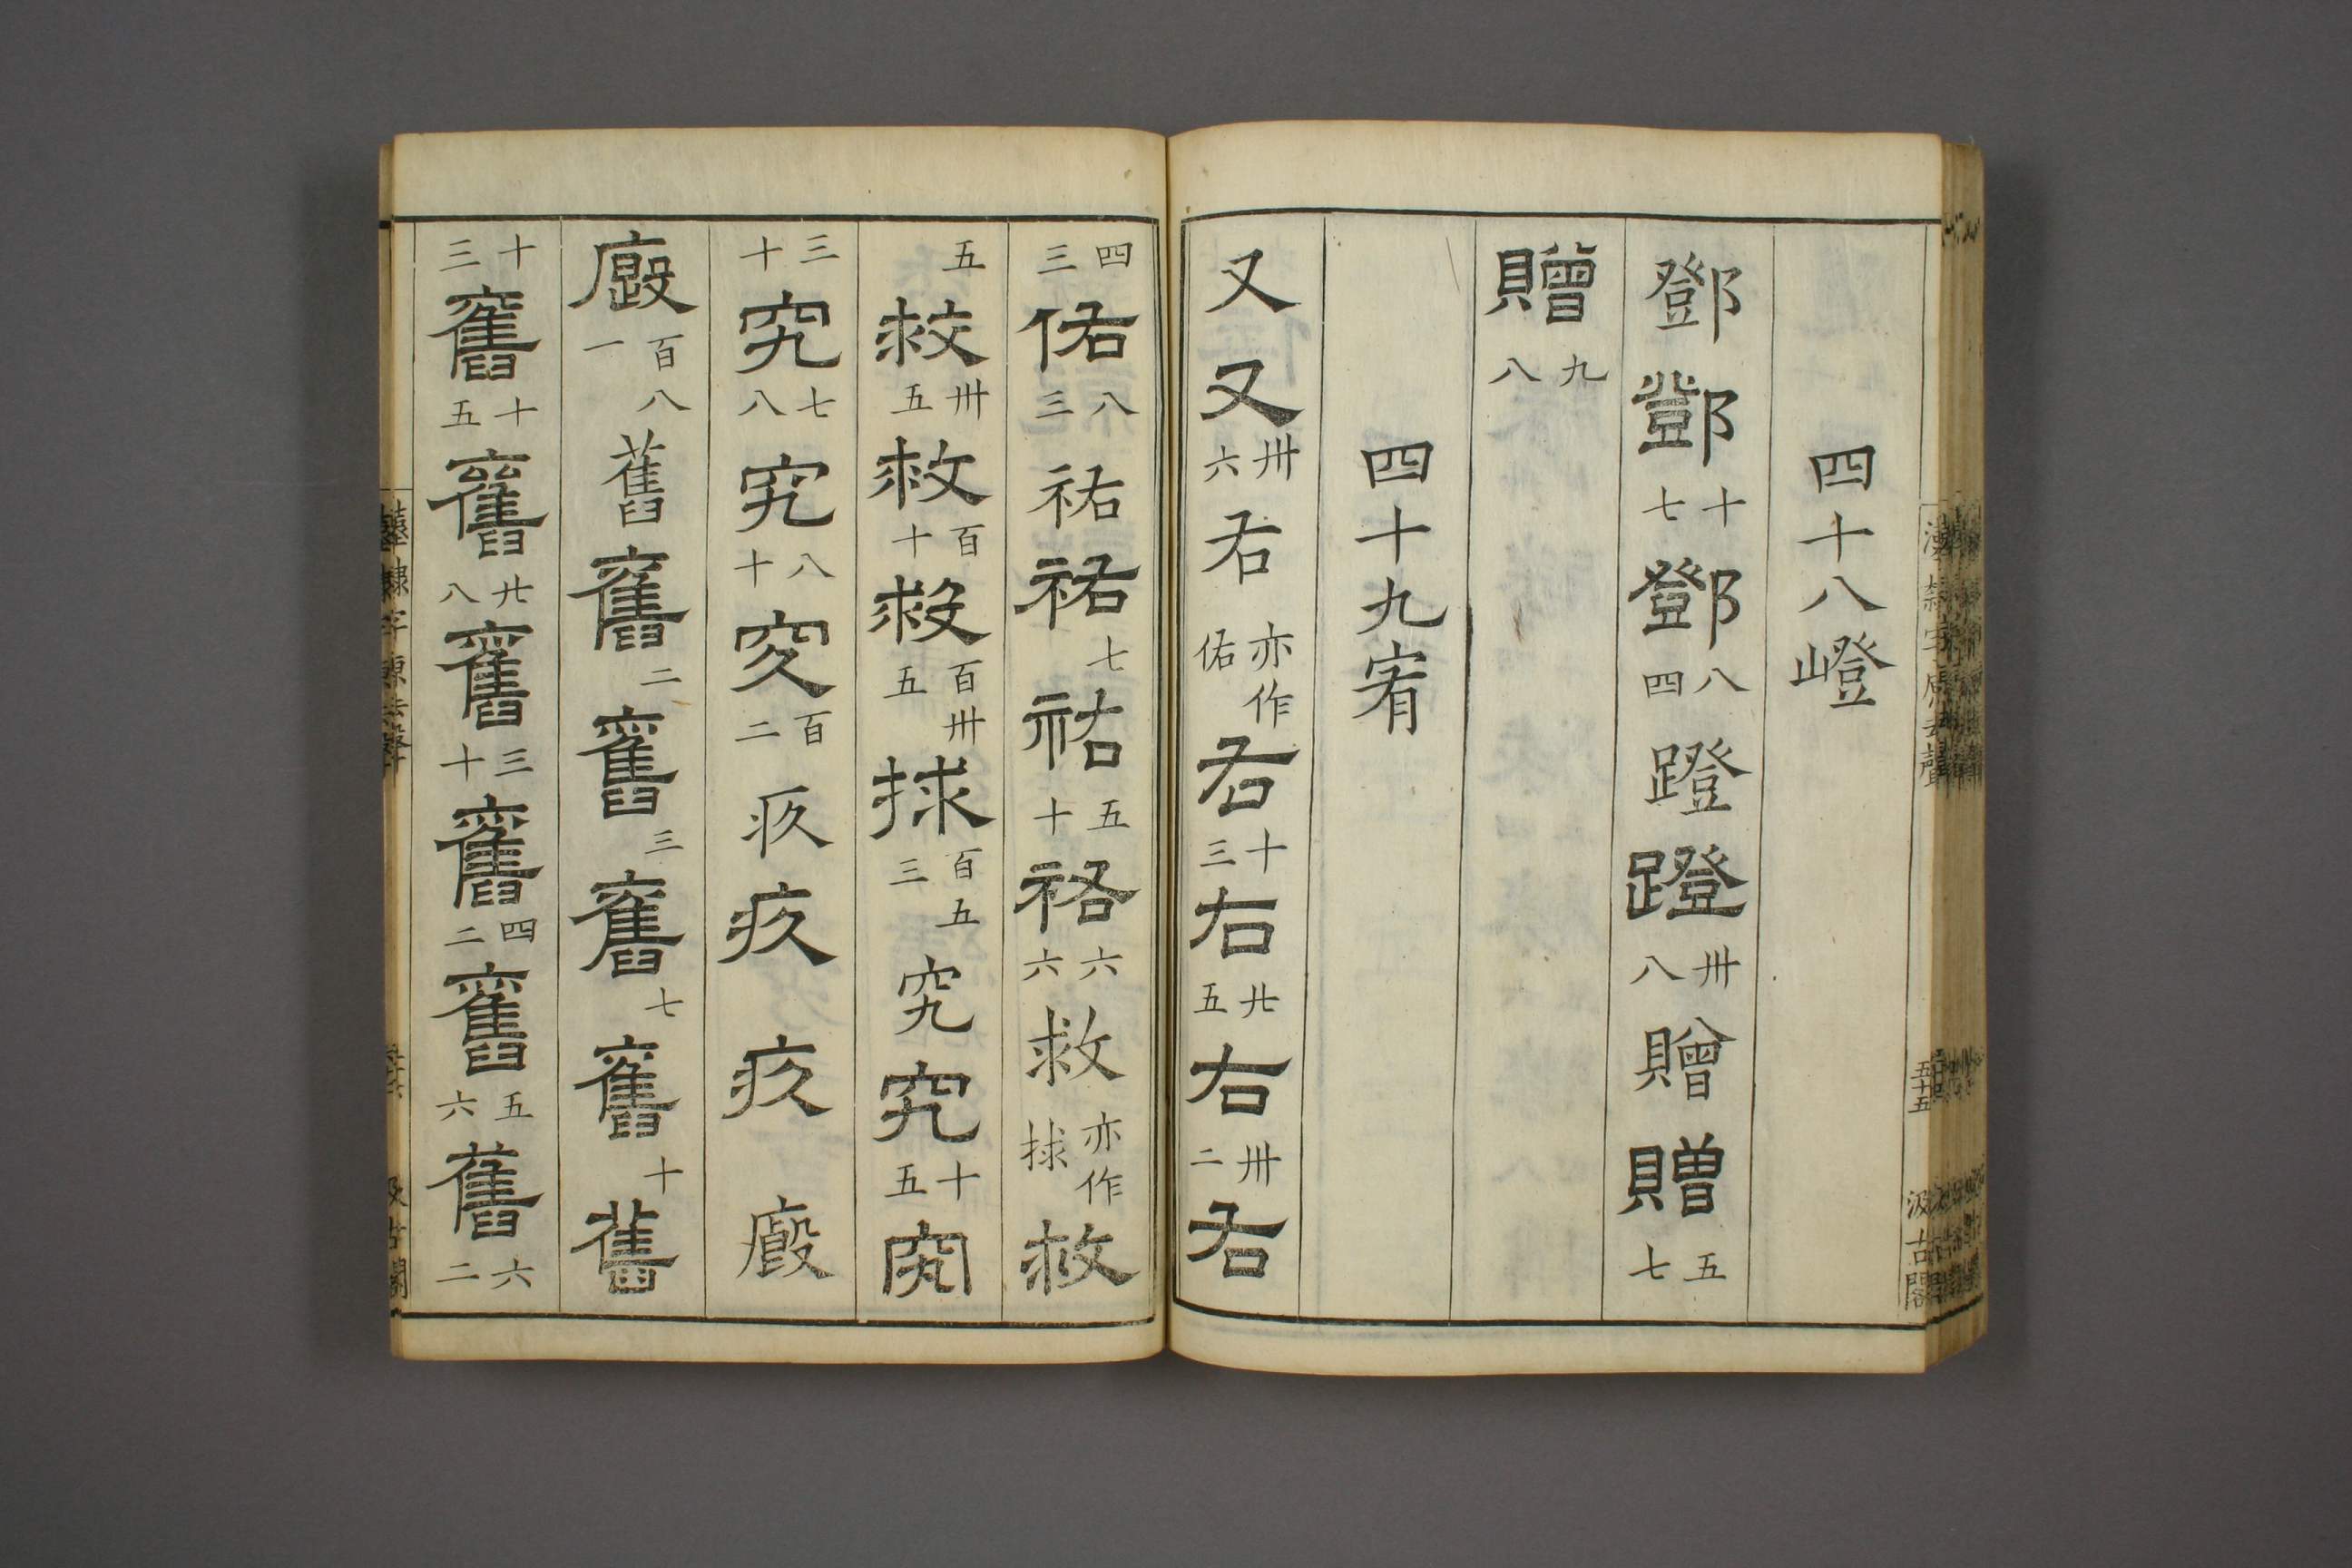 四十八嶝
鄧鄧十七鄧八四蹬蹬卅八贈贈五七
贈九八
四十九宥
又又卅六右亦作佑右十三右廿五右卅二右
四三佑八三祐祐七祐五十祐六六救亦作捄救
五救卅五救百十救百卅五捄百五三究究十五究
三十究七八究八十究百二疚疚疚廄
廄百八一舊舊二舊三舊七舊十舊
十三舊十五舊廿八舊三十舊四二舊五六舊六二
漢隸字源去聲
五十五
汲古閣